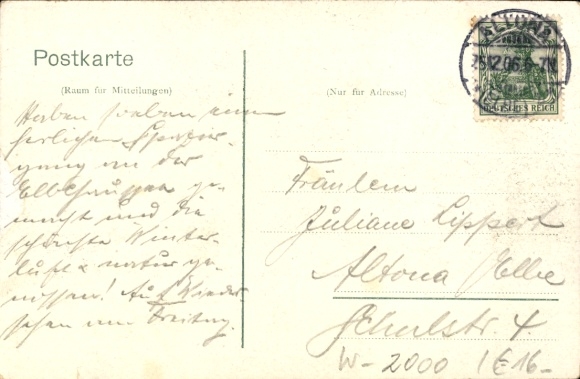 Postkarte
(Raum für Mitteilungen)
Haben soeben einen
herrlichen Spazier-
gang an der
Elbchaussee ge-
macht und die
schönste Winter-
luft & natur ge-
nossen! Auf Wieder
sehen am Freitag.
(Nur für Adresse)
ALTONA
25.12.06. 6-7N.
DEUTSCHES REICH
Fräulein
Juliane Lippert
Altona Elbe
Schulstr. 4.
W- 2000 1€16-